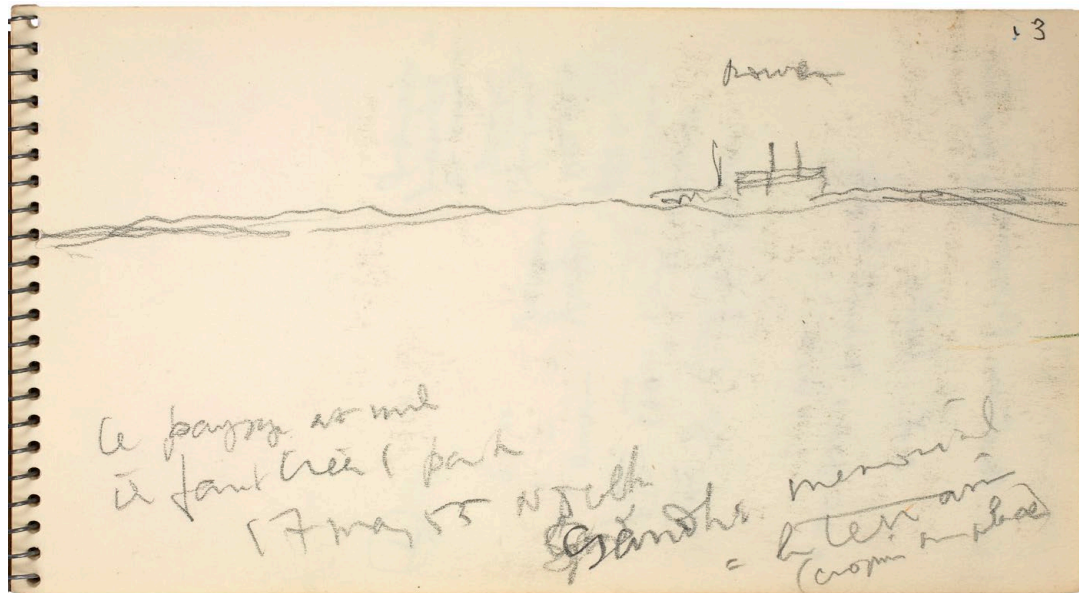 13
Ce paysage est nul
il faut créer (
17 may 55 N Delhi
Gandhi memorial
= le terrain
(croquis sur place)